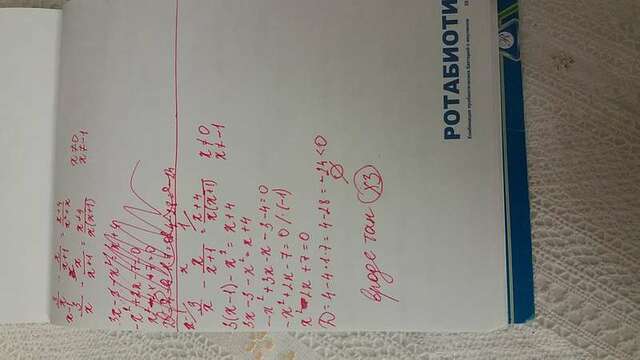 3/x - x/(x+1) = (x+4)/(x²+x)
x-1
3/x - x/(x+1) = (x+4)/(x(x+1)) x≠0
x≠-1
3x-3-x²=x+4
-x²+2x-7=0
3/x - x/(x+1) = (x+4)/(x(x+1)) x≠0
x≠-1
3(x-1)-x²=x+4
3x-3-x²=x+4
-x²+3x-x-3-4=0
-x²+2x-7=0 /·(-1)
x²-2x+7=0
D=4-4·1·7=4-28=-24<0
∅
вроде так х3
РОТАБИОТИ
Комбинация пробиотических бактерий с инулином